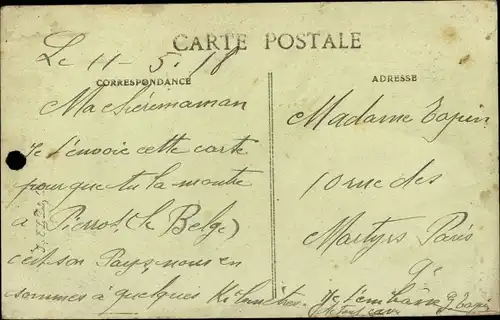 CARTE POSTALE
Le 11-5.18
CORRESPONDANCE
Ma chérie maman
Je t'envoie cette carte
pour que tu la montre
à Pierrot (le Belge)
c'est son Pays, nous en
sommes à quelques Kilomètres.
ADRESSE
Madame Tapin
10 rue des
Martyrs Paris
9e
Je t'embrasse G Tapin